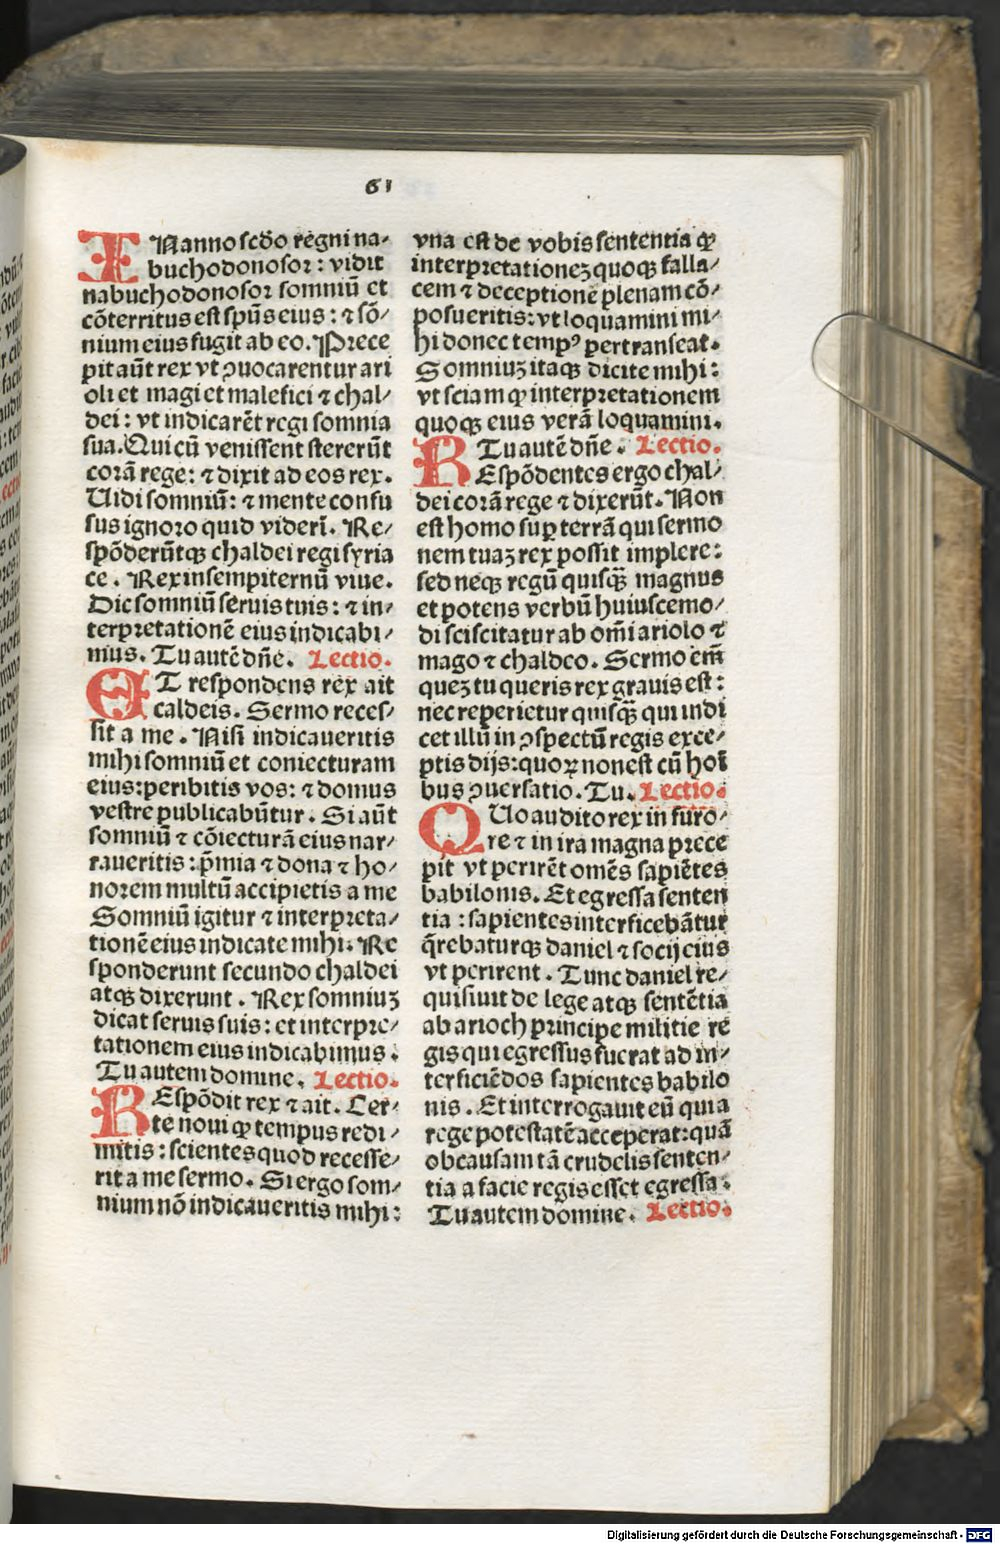 61
INanno scd̄o regni na⸗
buchodonosor : vidit
nabuchodonosor somniū et
cōterritus est spūs eius : ⁊ sō⸗
nium eius fugit ab eo. Prece
pit aūt rex vt ꝯuocarentur ari
oli et magi et malefici ⁊ chal⸗
dei : vt indicarēt regi somnia
sua. Qui cū venissent stererūt
corā rege : ⁊ dixit ad eos rex.
Uidi somniū : ⁊ mente confu
sus ignoro quid viderī. Re⸗
spōderūtqꝫ chaldei regi syria
ce. Rex in sempiternū viue.
Dic somniū seruis tuis : ⁊ in⸗
terpretationē eius indicabi⸗
mus. Tu autē dñe. Lectio.
ET respondens rex ait
caldeis. Sermo reces⸗
sit a me. Nisi indicaueritis
mihi somniū et coniecturam
eius : peribitis vos : ⁊ domus
vestre publicabūtur. Si aūt
somniū ⁊ cōiecturā eius nar⸗
raueritis : p̄mia ⁊ dona ⁊ ho⸗
norem multū accipietis a me
Somniū igitur ⁊ interpreta⸗
tionē eius indicate mihi. Re
sponderunt secundo chaldei
atqꝫ dixerunt. Rex somniuꝫ
dicat seruis suis : et interpre⸗
tationem eius indicabimus.
Tu autem domine. Lectio.
REspōdit rex ⁊ ait. Cer⸗
te noui ꝙ tempus redi⸗
mitis : scientes quod recesse⸗
rit a me sermo. Si ergo som⸗
nium nō indicaueritis mihi :
vna est de vobis sententia ꝙ
interpretationeꝫ quoqꝫ falla⸗
cem ⁊ deceptionē plenam cō⸗
posueritis : vt loquamini mi⸗
hi donec tempꝰ pertranseat.
Somniuꝫ itaqꝫ dicite mihi :
vt sciam ꝙ interpretationem
quoqꝫ eius verā loquamini.
Tu autē dñe. Lectio.
REspōdentes ergo chal⸗
dei corā rege ⁊ dixerūt. Non
est homo suꝑ terrā qui sermo
nem tuaꝫ rex possit implere :
sed neqꝫ regū quisqꝫ̄ magnus
et potens verbū huiuscemo⸗
di sciscitatur ab om̄i ariolo ⁊
mago ⁊ chaldeo. Sermo em̄
queꝫ tu queris rex grauis est :
nec reperietur quisqꝫ̄ qui indi
cet illū in ꝯspectū regis exce⸗
ptis dijs : quoꝝ non est cū hoī
bus ꝯuersatio. Tu. Lectio.
QUo audito rex in furo⸗
re ⁊ in ira magna prece
pit vt perirēt omēs sapiētes
babilonis. Et egressa senten
tia : sapientes interficebātur
q̄rebaturqꝫ daniel ⁊ socij eius
vt perirent. Tunc daniel re⸗
quisiuit de lege atqꝫ sentētia
ab arioch principe militie re
gis qui egressus fuerat ad in⸗
terficiēdos sapientes babilo
nis. Et interrogauit eū qui a
rege potestatē acceperat : quā
ob causam tā crudelis senten⸗
tia a facie regis esset egressa :
Tu autem domine. Lectio.
Digitalisierung gefördert durch die Deutsche Forschungsgemeinschaft - DFG